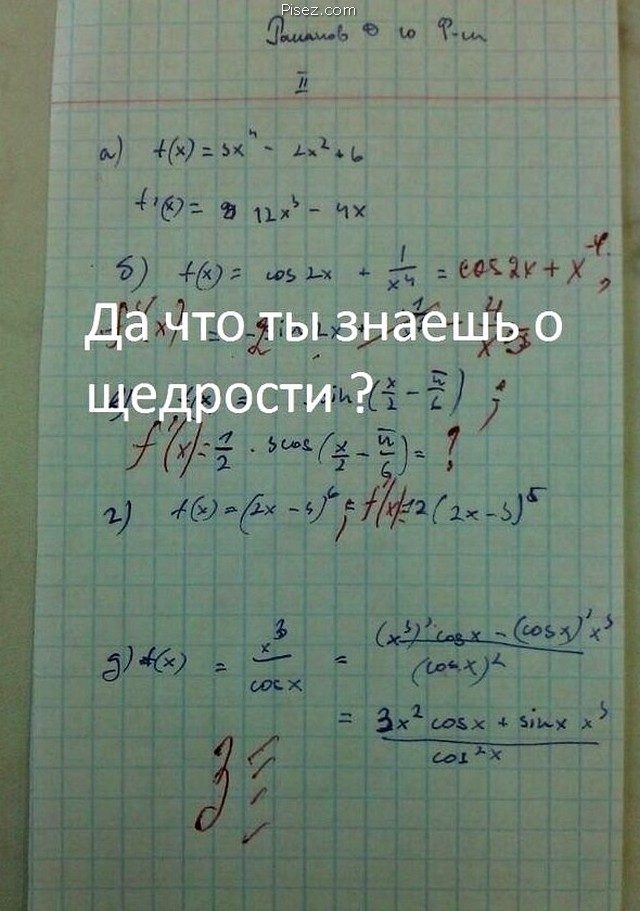 Pisez.com
Романов Ф 10 Ф-м
II
а) f(x) = 3x⁴ - 2x² + 6
f'(x) = 12x³ - 4x
б) f(x) = cos 2x + 1/x⁴ = cos 2x + x⁻⁴,
Да что ты знаешь о
щедрости ?
sin(x/2 - π/6) ;
f'(x) = 1/2 · 3cos(x/2 - π/6) = !
г) f(x) = (2x - 3)⁶ ; f'(x) = 12(2x - 3)⁵
д) f(x) = x³/cosx = ((x³)' cosx - (cosx)' x³)/(cosx)²
= (3x² cosx + sinx x³)/cos²x
3